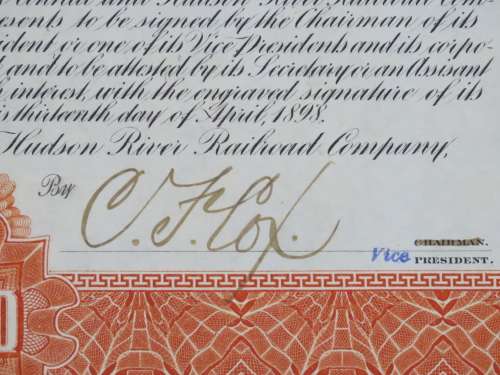 Central and Hudson River Railroad Com-
sents to be signed by the Chairman of its
sident or one of its Vice Presidents and its corpo-
and to be attested by its Secretary or an Assisant
interest, with the engraved signature of its
thirteenth day of April, 1898.
Hudson River Railroad Company,
By C. F. Cox.
CHAIRMAN.
Vice PRESIDENT.
D